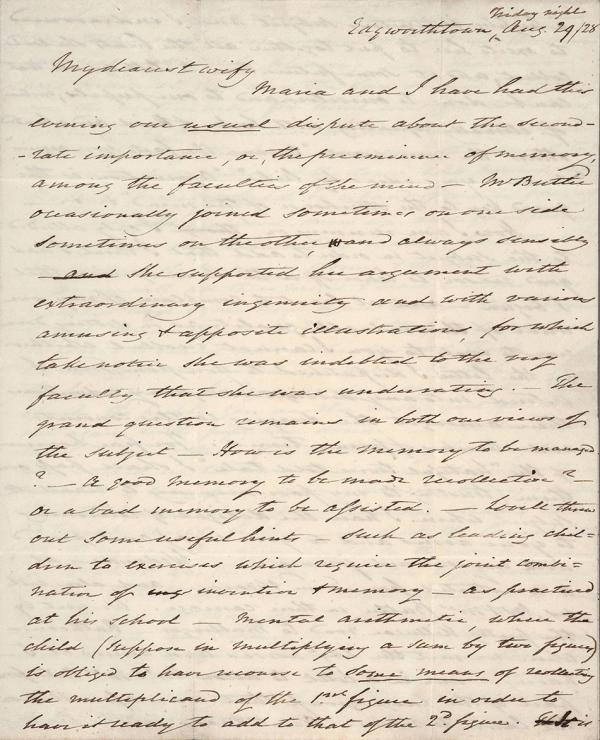 Friday night
Edgworthtown, Aug. 29/28
My dearest wify
Maria and I have had this
evening our usual dispute about the second-
-rate importance, or, the preeminence of memory,
among the faculties of the mind — Mr Butler
occasionally joined sometimes on one side
sometimes on the other, and always sensibly
— and She supported her argument with
extraordinary ingenuity and with various
amusing & apposite illustrations, for which
take notice she was indebted to the very
faculty that she was underrating. — The
grand question remains in both our views of
the subject — How is the memory to be managed
? — A good memory to be made recollective? —
or a bad memory to be assisted. — Lovell threw
out some useful hints — such as leading chil=
dren to exercises which require the joint combi=
nation of invention & memory — as practised
at his school — Mental arithmetic, where the
child (suppose in multiplying a sum by two figures)
is obliged to have recourse to some means of recollecting
the multiplicand of the 1st figure in order to
have it ready to add to that of the 2d figure. It is